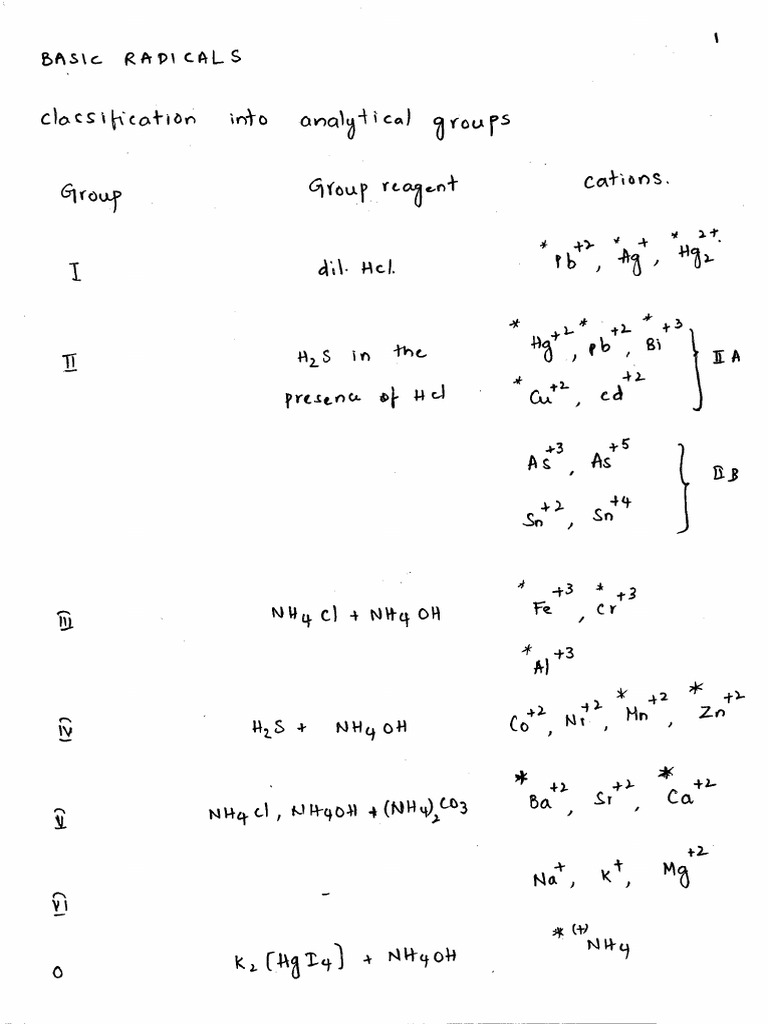 1
BASIC RADICALS
Classification into analytical groups
Group Group reagent cations.
I dil. Hcl. *Pb+2, *Ag+, *Hg2 2+.
II H2S in the *Hg+2, *Pb+2, *Bi+3 } II A
presence of Hcl *Cu+2, cd+2
As+3, As+5 } II B
Sn+2, Sn+4
III NH4Cl + NH4OH *Fe+3, *Cr+3
*Al+3
IV H2S + NH4OH Co+2, Ni+2, *Mn+2, *Zn+2
V NH4Cl, NH4OH + (NH4)2CO3 *Ba+2, Sr+2, *Ca+2
VI - Na+, K+, Mg+2
O K2[HgI4] + NH4OH *(+)NH4